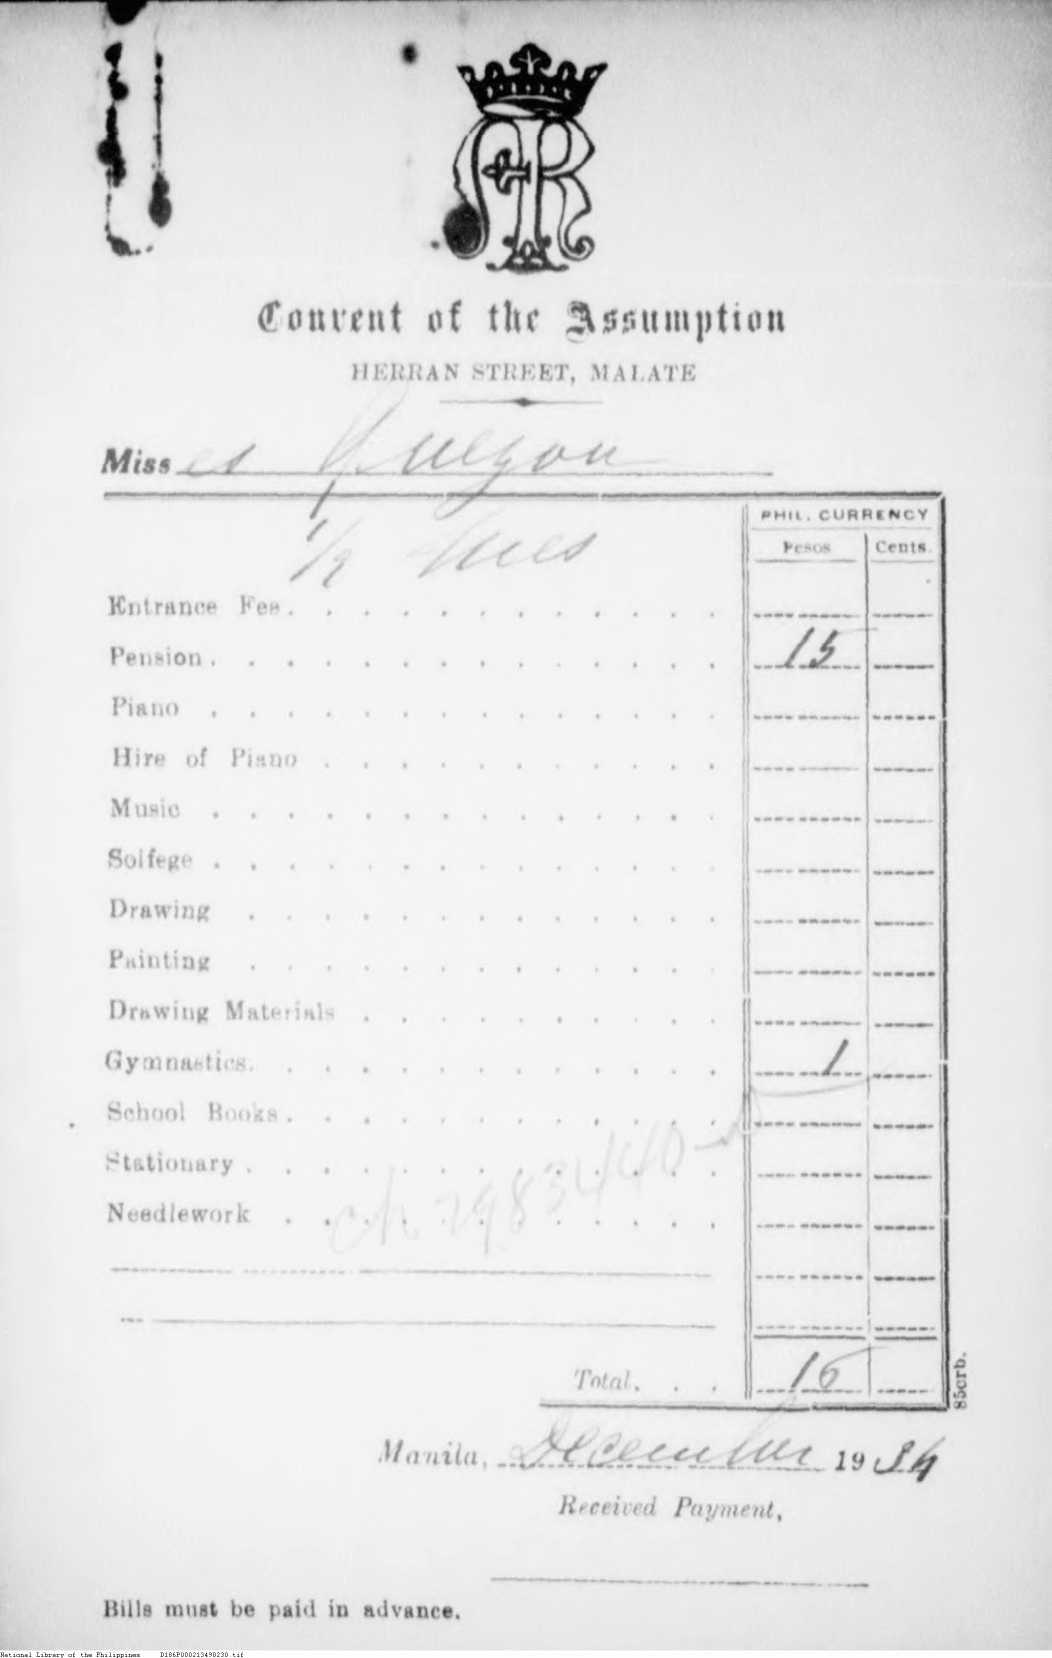 AR
Convent of the Assumption
HERRAN STREET, MALATE
Misses Quezon
PHIL. CURRENCY
Pesos Cents.
1/2
Entrance Fee . . . . . . . . . . . .
Pension . . . . . . . . . . . . . . 15
Piano . . . . . . . . . . . . . .
Hire of Piano . . . . . . . . . . .
Music . . . . . . . . . . . . . .
Solfege . . . . . . . . . . . . . .
Drawing . . . . . . . . . . . . .
Painting . . . . . . . . . . . . .
Drawing Materials . . . . . . . . . .
Gymnastics. . . . . . . . . . . . . 1
School Books . . . . . . . . . . . .
Stationary . . . . . . . . . . . . .
Needlework . . . . . . . . . . . .
ch 2983440
Total. . . 16
85crb.
Manila, December 1934
Received Payment,
Bills must be paid in advance.
National Library of the Philippines D186P000213498230.tif